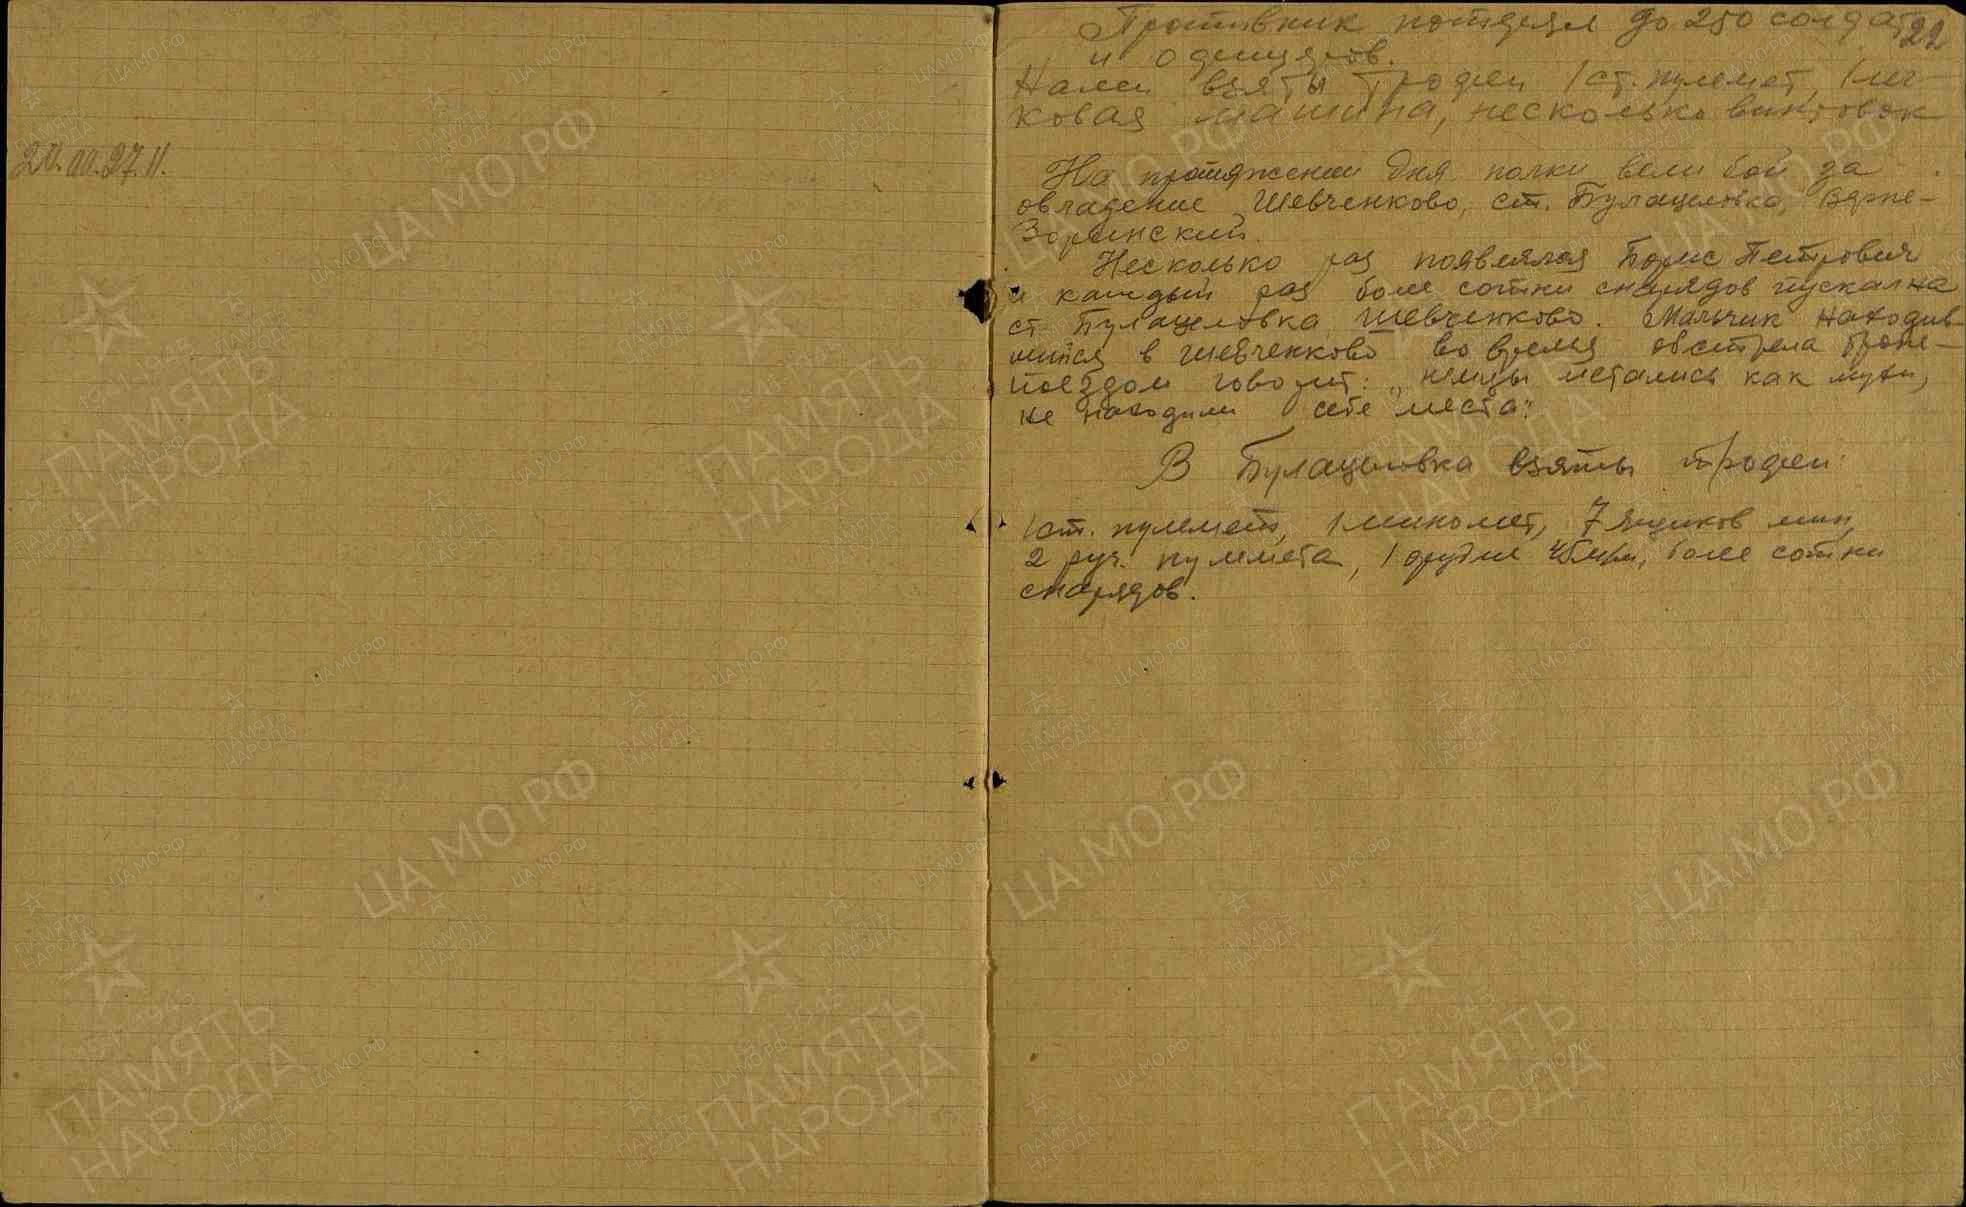 20.00.27.11.
22
Противник потерял до 250 солдат
и офицеров.
Нами взяты трофеи 1 ст. пулемет, 1 лег-
ковая машина, несколько винтовок
На протяжении дня полки вели бой за
овладение Шевченково, ст. Булацеловка,
Зорянский.
Несколько раз появлялся Борис Петрович
и каждый раз более сотни снарядов пускал на
ст. Булацеловка Шевченково. Мальчик находив-
шийся в Шевченково во время обстрела броне-
поездом говорит: „немцы метались как мухи,
не находили себе места".
В Булацеловка взяты трофеи:
1 ст. пулемет, 1 миномет, 7 ящиков мин,
2 руч. пулемета, 1 орудие 45 м/м, более сотни
снарядов.